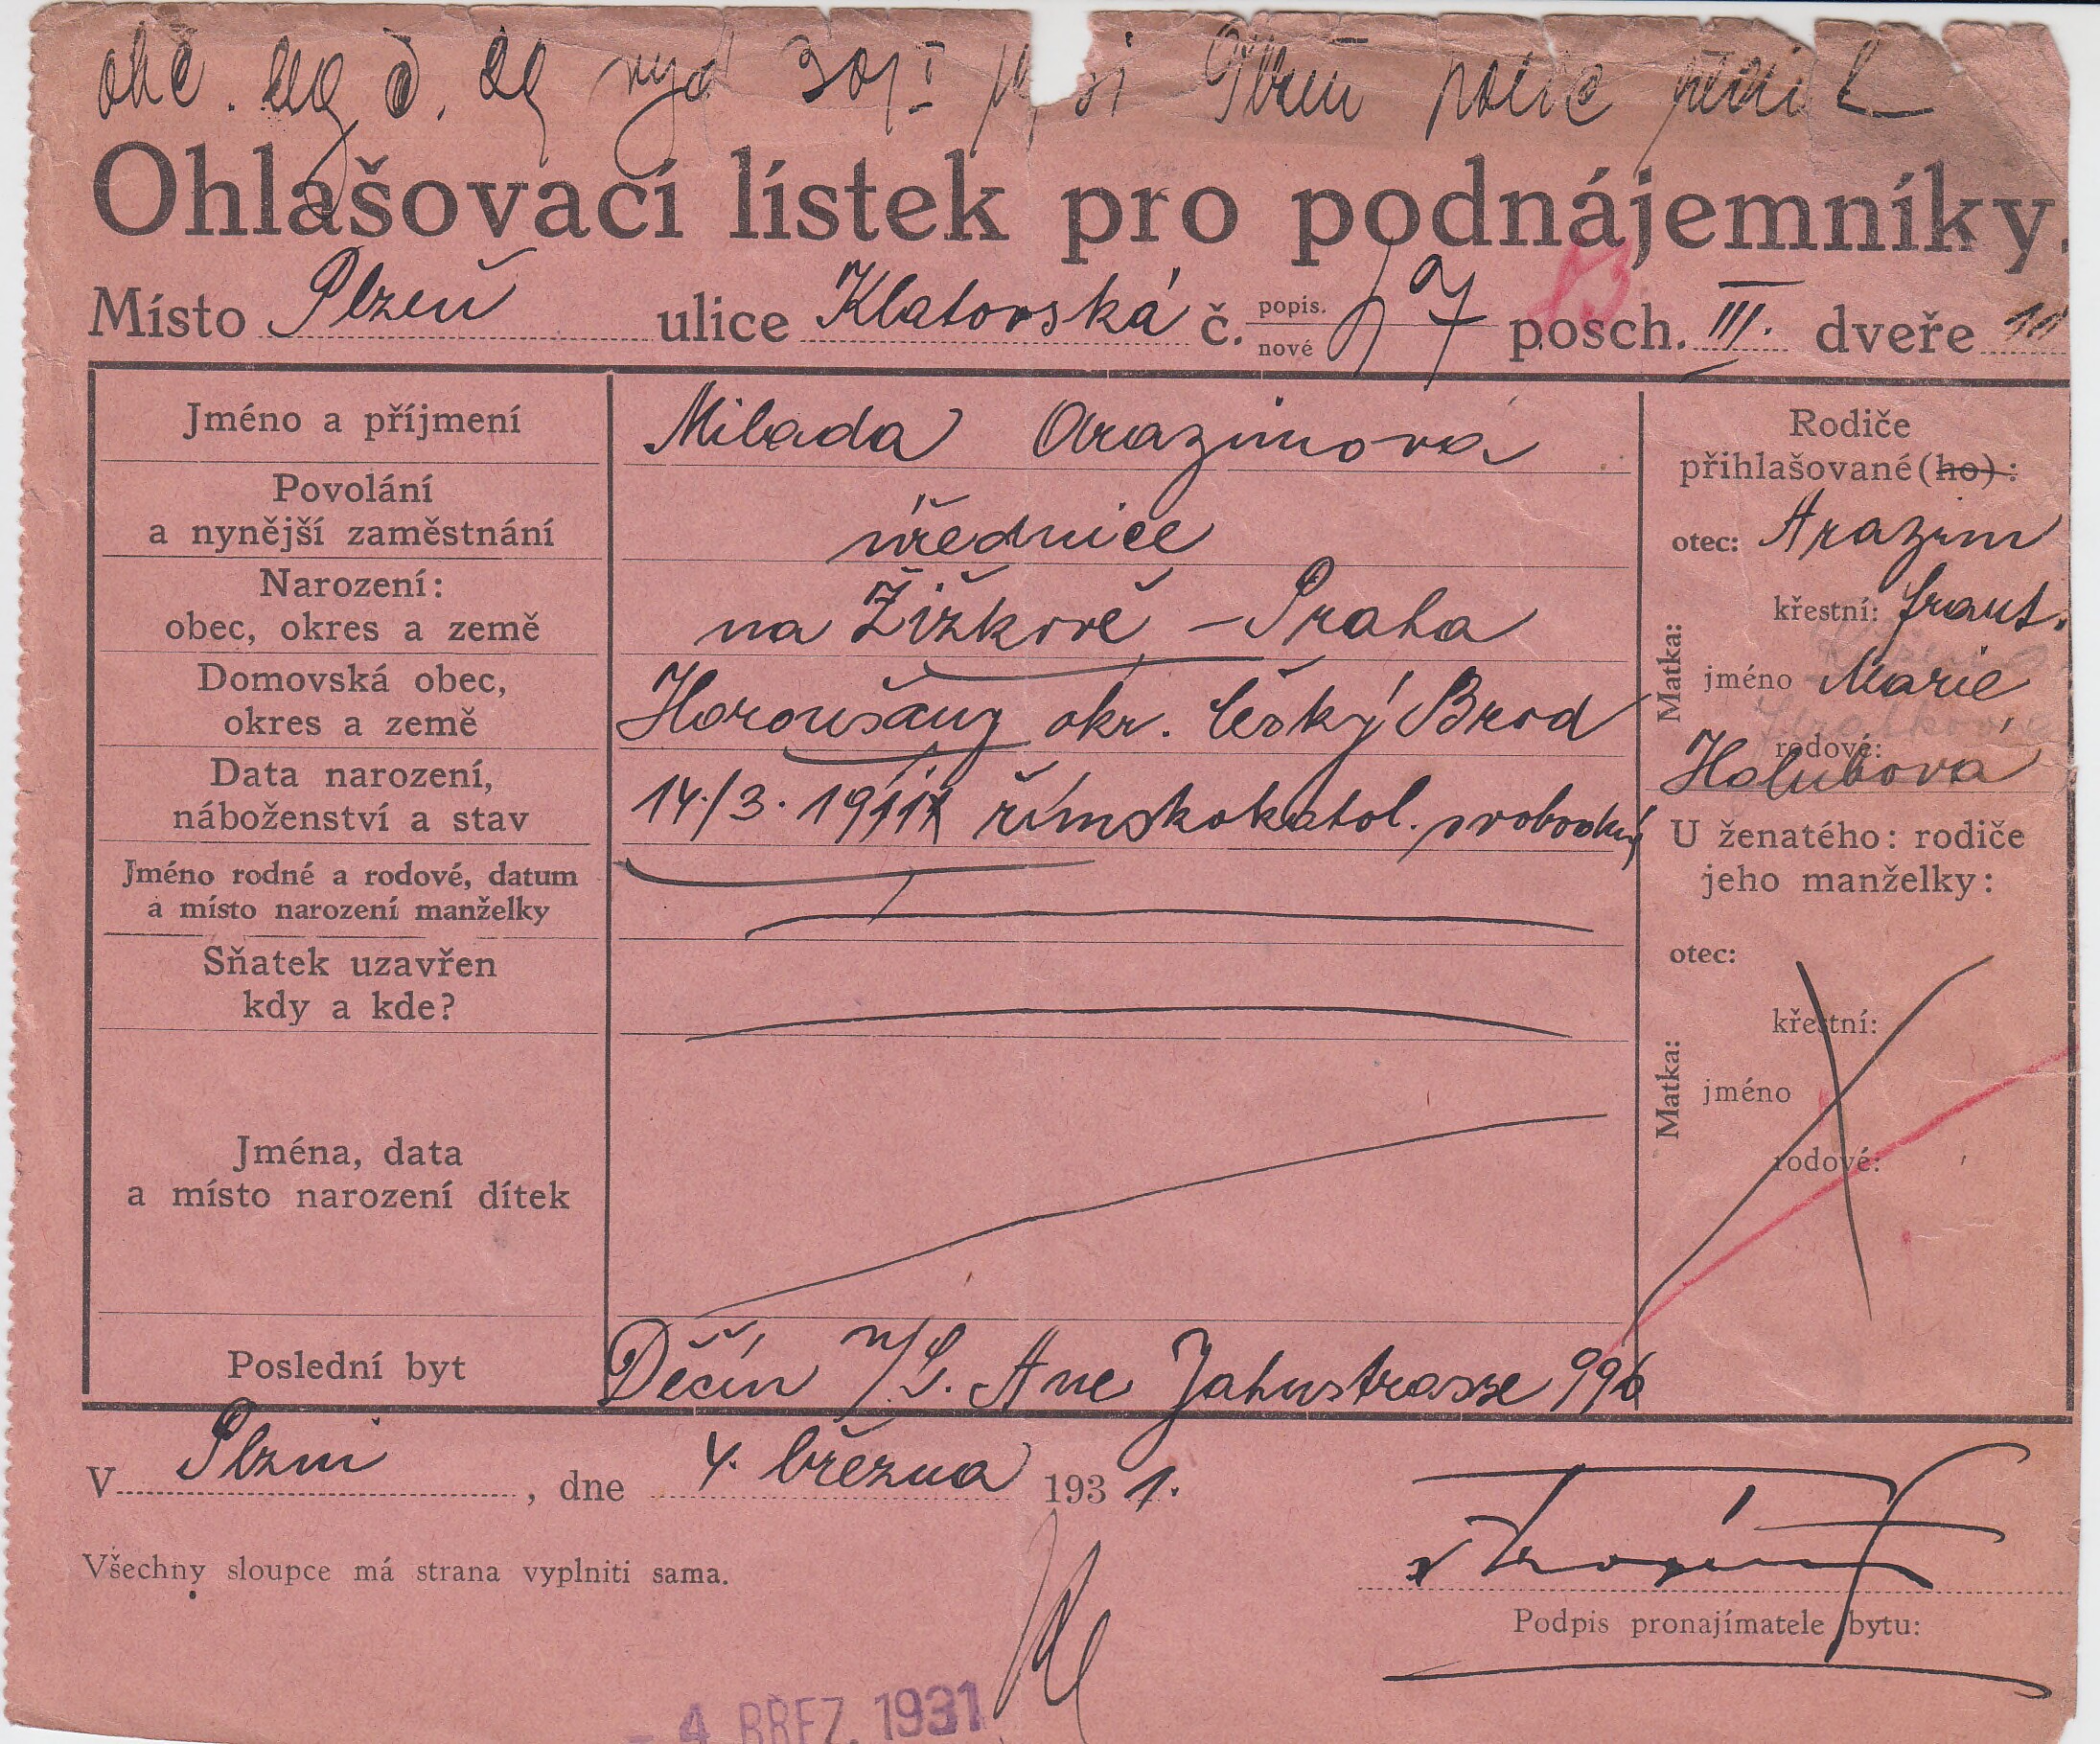 obč. leg č. 29 vyd 30/I Plzeň polic
Ohlašovací lístek pro podnájemníky.
Místo Plzeň ulice Klatovská č. popis. nové 7 posch. III. dveře
Jméno a příjmení Milada Arazimová
Povolání
a nynější zaměstnání úřednice
Narození:
obec, okres a země na Žižkově – Praha
Domovská obec,
okres a země Horoušany okr. Český Brod
Data narození,
náboženství a stav 14./3. 1911 římskokatol. svobodný
Jméno rodné a rodové, datum
a místo narození manželky
Sňatek uzavřen
kdy a kde?
Jména, data
a místo narození dítek
Poslední byt Děčín n/L. Aue Jahnstrasse 996
Rodiče
přihlašované(ho):
otec: Arazim
křestní: Frant.
Matka: jméno Marie
rodové:
Holubová
U ženatého: rodiče
jeho manželky:
otec:
křestní:
Matka: jméno
rodové:
V Plzni, dne 4. března 1931.
Všechny sloupce má strana vyplniti sama.
Podpis pronajímatele bytu:
- 4 BŘEZ. 1931